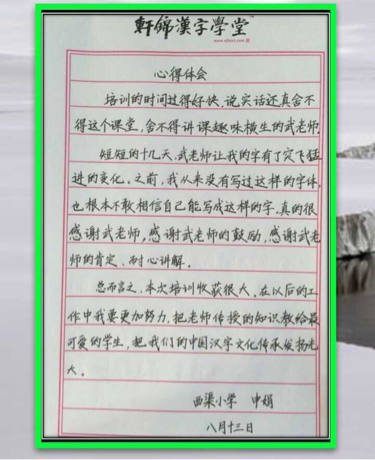 軒錦漢字學堂
心得体会
培训的时间过得好快,说实话还真舍不
得这个课堂,舍不得讲课趣味横生的武老师
短短的十几天,武老师让我的字有了突飞猛
进的变化。之前,我从来没有写过这样的字体,
也根本不敢相信自己能写成这样的字,真的很
感谢武老师,感谢武老师的鼓励,感谢武老
师的肯定、耐心讲解。
总而言之,本次培训收获很大,在以后的工
作中我要更加努力,把老师传授的知识教给最
可爱的学生,把我们的中国汉字文化传承发扬光
大。
西渠小学 申娟
八月十三日